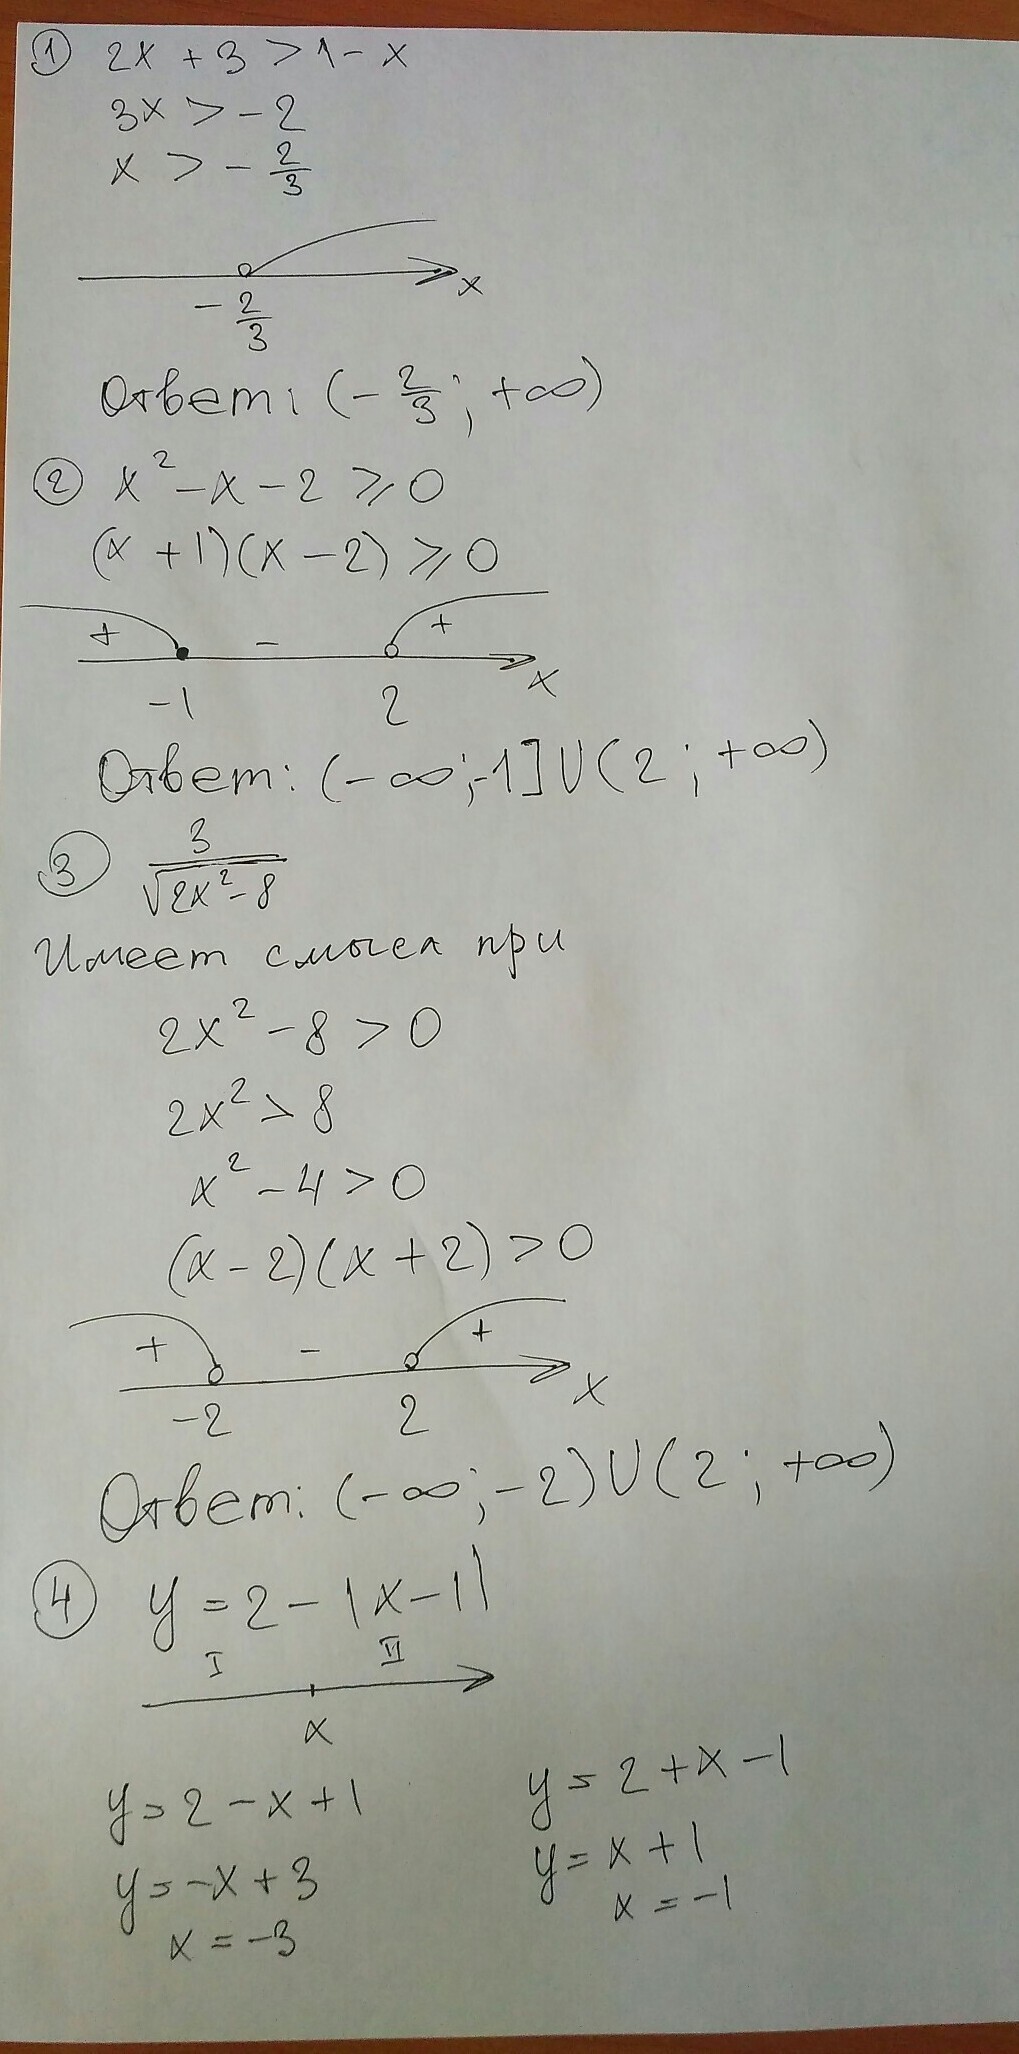 ① 2x + 3 > 1 - x
3x > - 2
x > - 2/3
x
- 2/3
Ответ: (- 2/3 ; +∞)
② x² - x - 2 ⩾ 0
(x + 1)(x - 2) ⩾ 0
+ - +
-1 2 x
Ответ: (-∞;-1]∪(2 ; +∞)
③ 3/√(2x² - 8)
Имеет смысл при
2x² - 8 > 0
2x² > 8
x² - 4 > 0
(x - 2)(x + 2) > 0
+ - +
-2 2 x
Ответ: (-∞; -2)∪(2 ; +∞)
④ y = 2 - |x - 1|
I II
x
y = 2 - x + 1
y = -x + 3
x = -3
y = 2 + x - 1
y = x + 1
x = -1